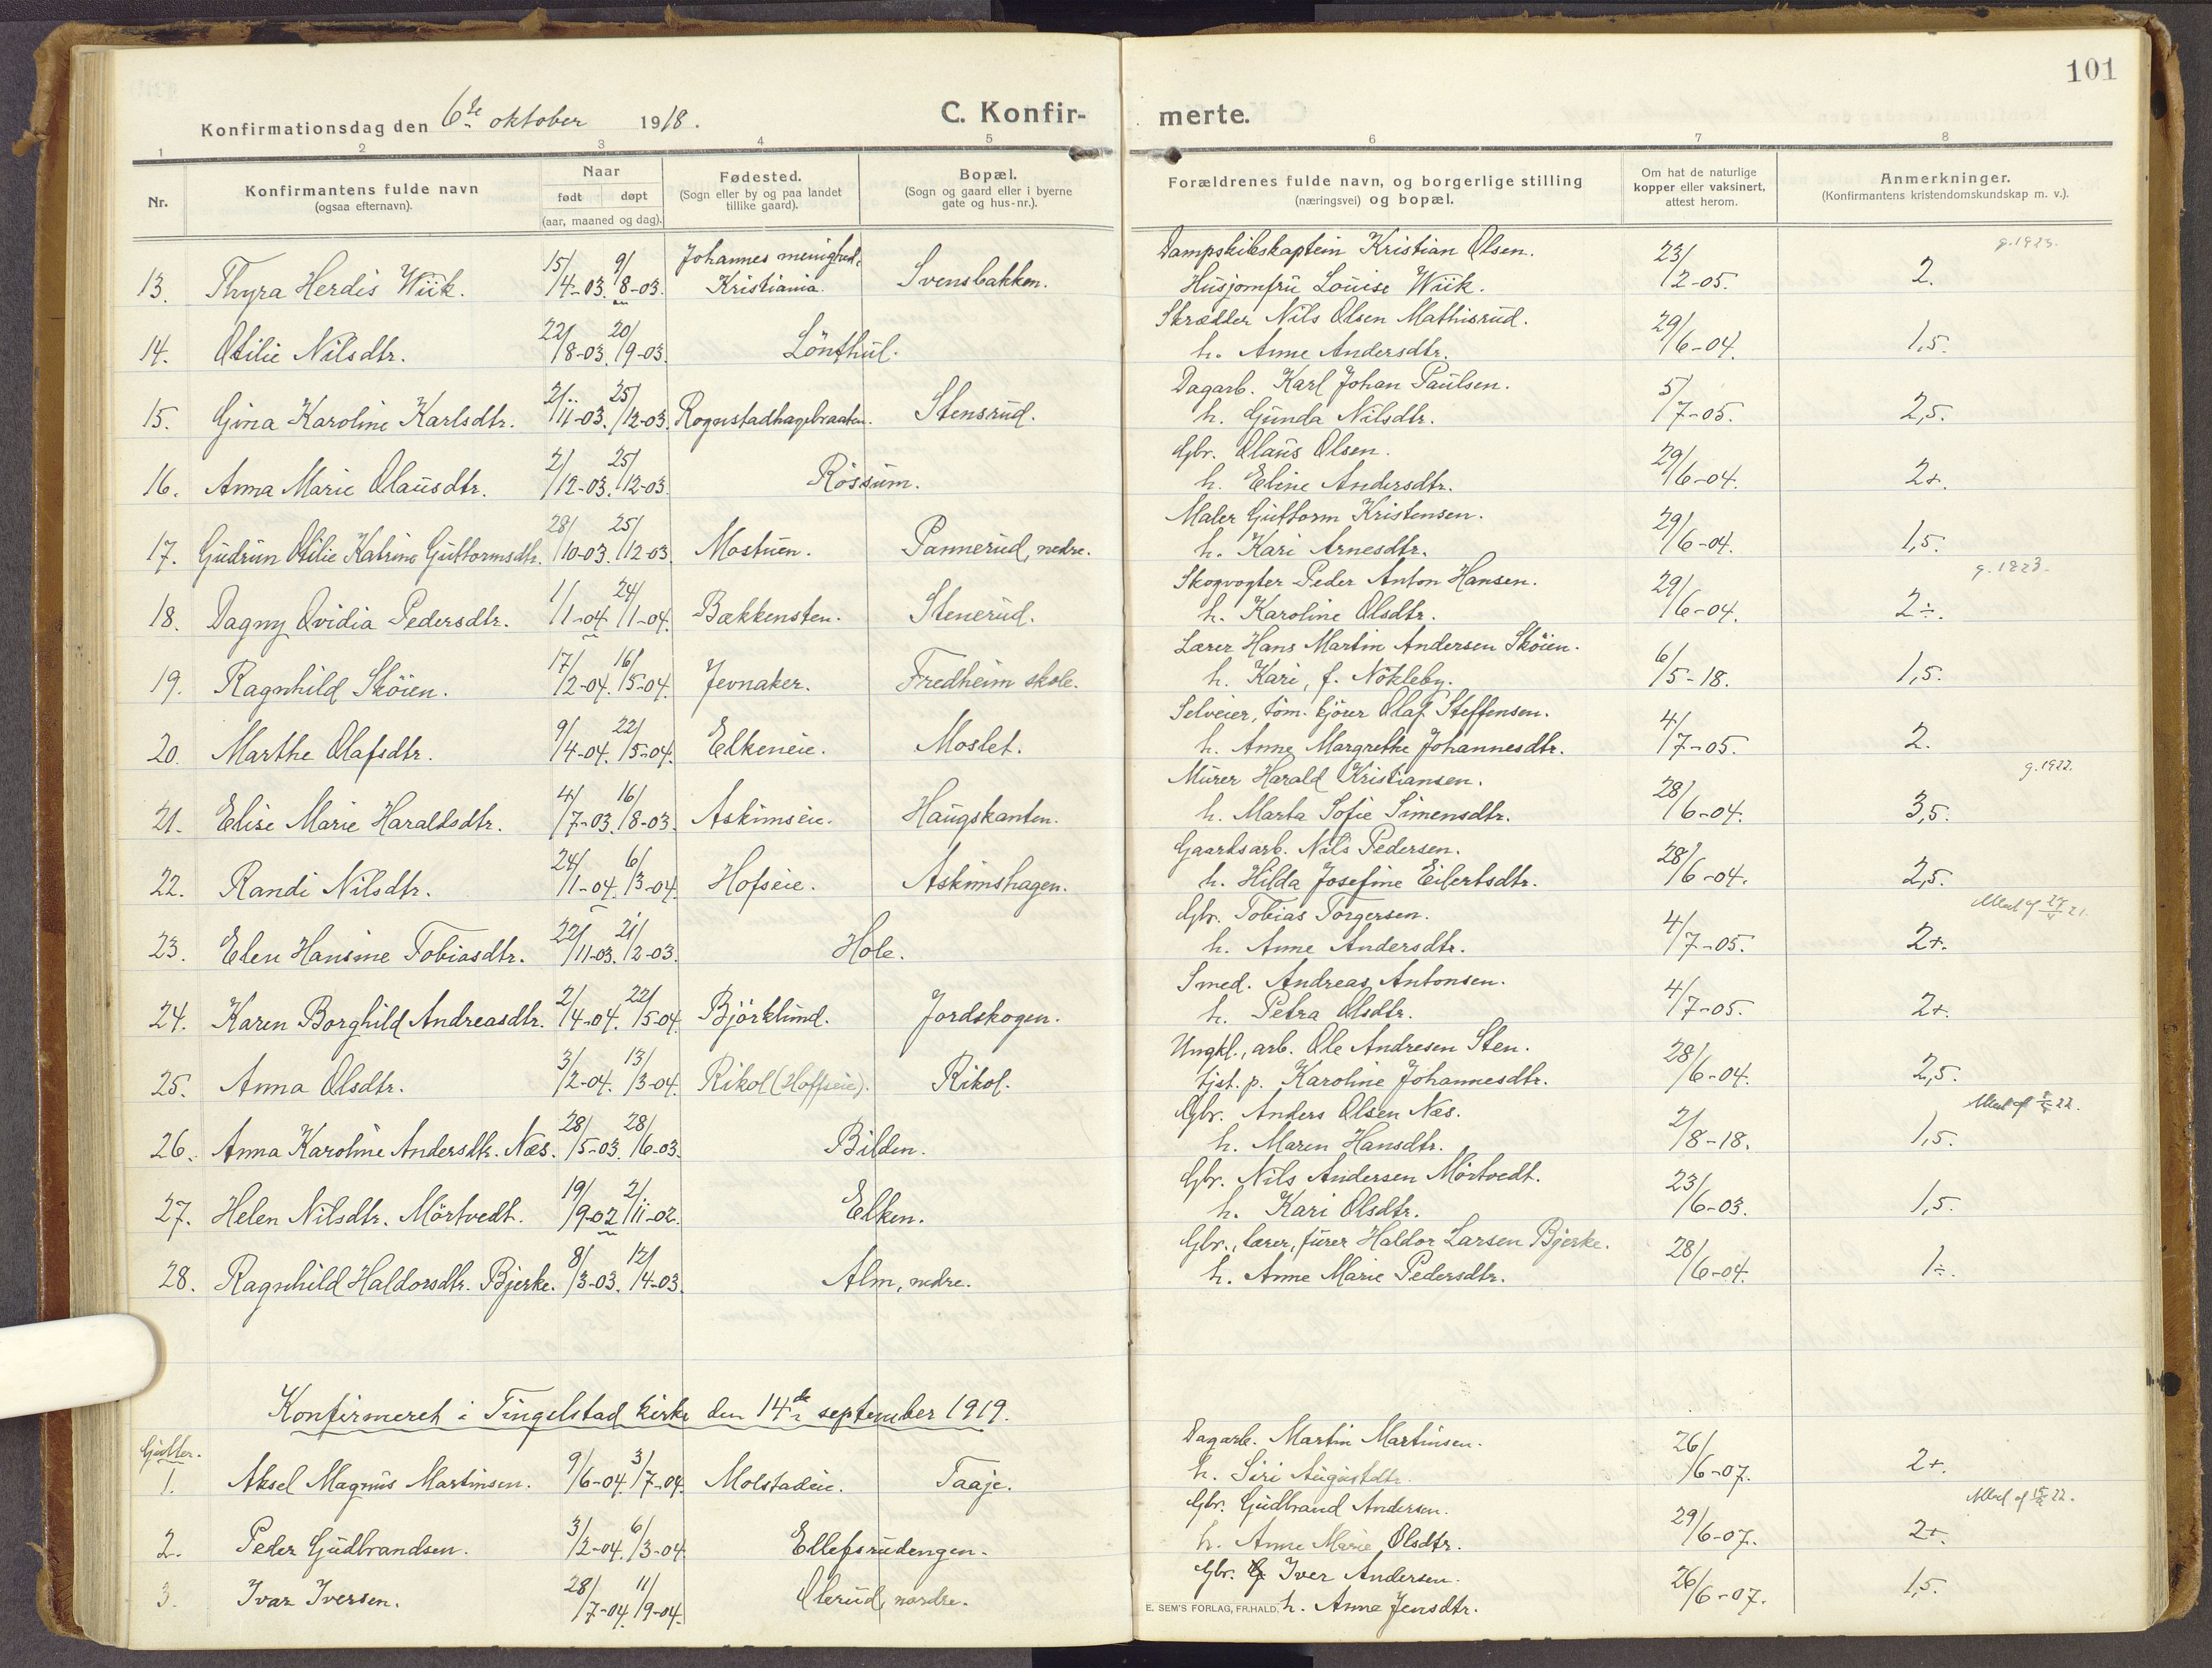 101
Konfirmationsdag den 6te oktober 1918.
C. Konfirmerte.
1 2 3 4 5 6 7 8
Nr. Konfirmantens fulde navn (ogsaa efternavn). Naar født døpt (aar, maaned og dag). Fødested. (Sogn eller by og paa landet tillike gaard). Bopæl. (Sogn og gaard eller i byerne gate og hus-nr.). Forældrenes fulde navn, og borgerlige stilling (næringsvei) og bopæl. Om hat de naturlige kopper eller vaksinert, attest herom. Anmerkninger. (Konfirmantens kristendomskundskap m. v.).
13. Thyra Herdis Wiik. 15/4-03. 9/8-03. Johannes menighed, Kristiania. Svensbakken. Dampskibskaptein Kristian Olsen. Husjomfru Louise Wiik. 23/12-05. 2. g. 1923.
14. Otilie Nilsdtr. 22/8-03. 20/9-03. Lönthul. Skrædder Nils Olsen Mathisrud. h. Anne Andersdtr. 29/6-04. 1,5.
15. Gina Karoline Karlsdtr. 2/11-03. 25/12-03. Rognstadhagebraaten. Stensrud. Dagarb. Karl Johan Paulsen. h. Gunda Nilsdtr. 5/7-05. 2,5.
16. Anna Marie Olausdtr. 2/12-03. 25/12-03. Røssum. Gbr. Olaus Olsen. h. Eline Andersdtr. 29/6-04. 2+.
17. Gudrun Otilie Katrine Guttormsdtr. 28/10-03. 25/12-03. Mostuen. Pannerud, nedre. Maler Guttorm Kristensen. h. Kari Arnesdtr. 29/6-04. 1,5.
18. Dagny Ovidia Pedersdtr. 1/1-04. 24/1-04. Bækkensten. Stenerud. Skogvogter Peder Anton Hansen. h. Karoline Olsdtr. 29/6-04. 2÷. g. 1923.
19. Ragnhild Sköien. 17/2-04. 16/5-04. Jevnaker. Fredheim skole. Lærer Hans Martin Andersen Sköien. h. Kari, f. Nökleby. 6/5-18. 1,5.
20. Marthe Olafsdtr. 9/4-04. 22/5-04. Elkeneie. Moslet. Selveier, töm. kjörer Olaf Steffensen. h. Anne Margrethe Johannesdtr. 4/7-05. 2.
21. Elise Marie Haraldsdtr. 4/7-03. 16/8-03. Askimseie. Haugskanten. Murer Harald Kristiansen. h. Marta Sofie Simensdtr. 28/6-04. 3,5. g. 1922.
22. Randi Nilsdtr. 24/1-04. 6/3-04. Hofseie. Askimshagen. Gaardsarb. Nils Pedersen. h. Hilda Josefine Eilertsdtr. 28/6-04. 2,5.
23. Elen Hansine Tobiasdtr. 22/11-03. 21/12-03. Hole. Gbr. Tobias Torgersen. h. Anne Andersdtr. 4/7-05. 2+.
24. Karen Borghild Andreasdtr. 2/4-04. 22/5-04. Björklund. Jordskogen. Smed. Andreas Antonsen. h. Petra Olsdtr. 4/7-05. 2+.
25. Anna Olsdtr. 3/2-04. 13/3-04. Rikol (Hoffseie). Rikol. Ungkl., arb. Ole Andresen Sten. tjst. p. Karoline Johannesdtr. 28/6-04. 2,5.
26. Anna Karoline Andersdtr. Næs. 28/5-03. 28/6-03. Bilden. Gbr. Anders Olsen Næs. h. Maren Hansdtr. 2/8-18. 1,5.
27. Helen Nilsdtr. Mörtvedt. 19/9-02 2/11-02. Elken. Gbr. Nils Andersen Mörtvedt. h. Kari Olsdtr. 23/6-03. 1,5.
28. Ragnhild Haldorsdtr. Bjerke. 8/3-03. 12/4-03. Alm, nedre. Gbr., lærer, furer Haldor Larsen Bjerke. h. Anne Marie Pedersdtr. 28/6-04. 1÷.
Konfirmeret i Tingelstad kirke den 14de september 1919.
Gutter.
1. Aksel Magnus Martinsen. 9/6-04. 3/7-04. Molstadeie. Taaje. Dagarb. Martin Martinsen. h. Siri Augustdtr. 26/6-07. 2+.
2. Peder Gudbrandsen. 3/2-04. 6/3-04. Ellefsrudengen. Gbr. Gudbrand Andersen. h. Anne Marie Olsdtr. 29/6-07. 2+.
3. Ivar Iversen. 28/7-04. 11/9-04. Olerud, nordre. Gbr. Iver Andersen. h. Anne Jensdtr. 26/6-07. 1,5.
E. SEM'S FORLAG, FR.HALD.